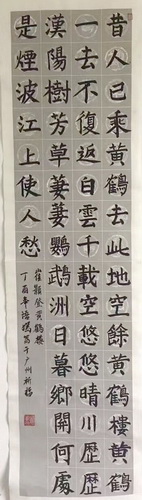 昔人已乘黃鶴去此地空餘黃鶴樓黃鶴
一去不復返白雲千載空悠悠晴川歷歷
漢陽樹芳草萋萋鸚鵡洲日暮鄉開何處
是煙波江上使人愁
崔顥登黃鶴樓
丁酉年 于广州祈福